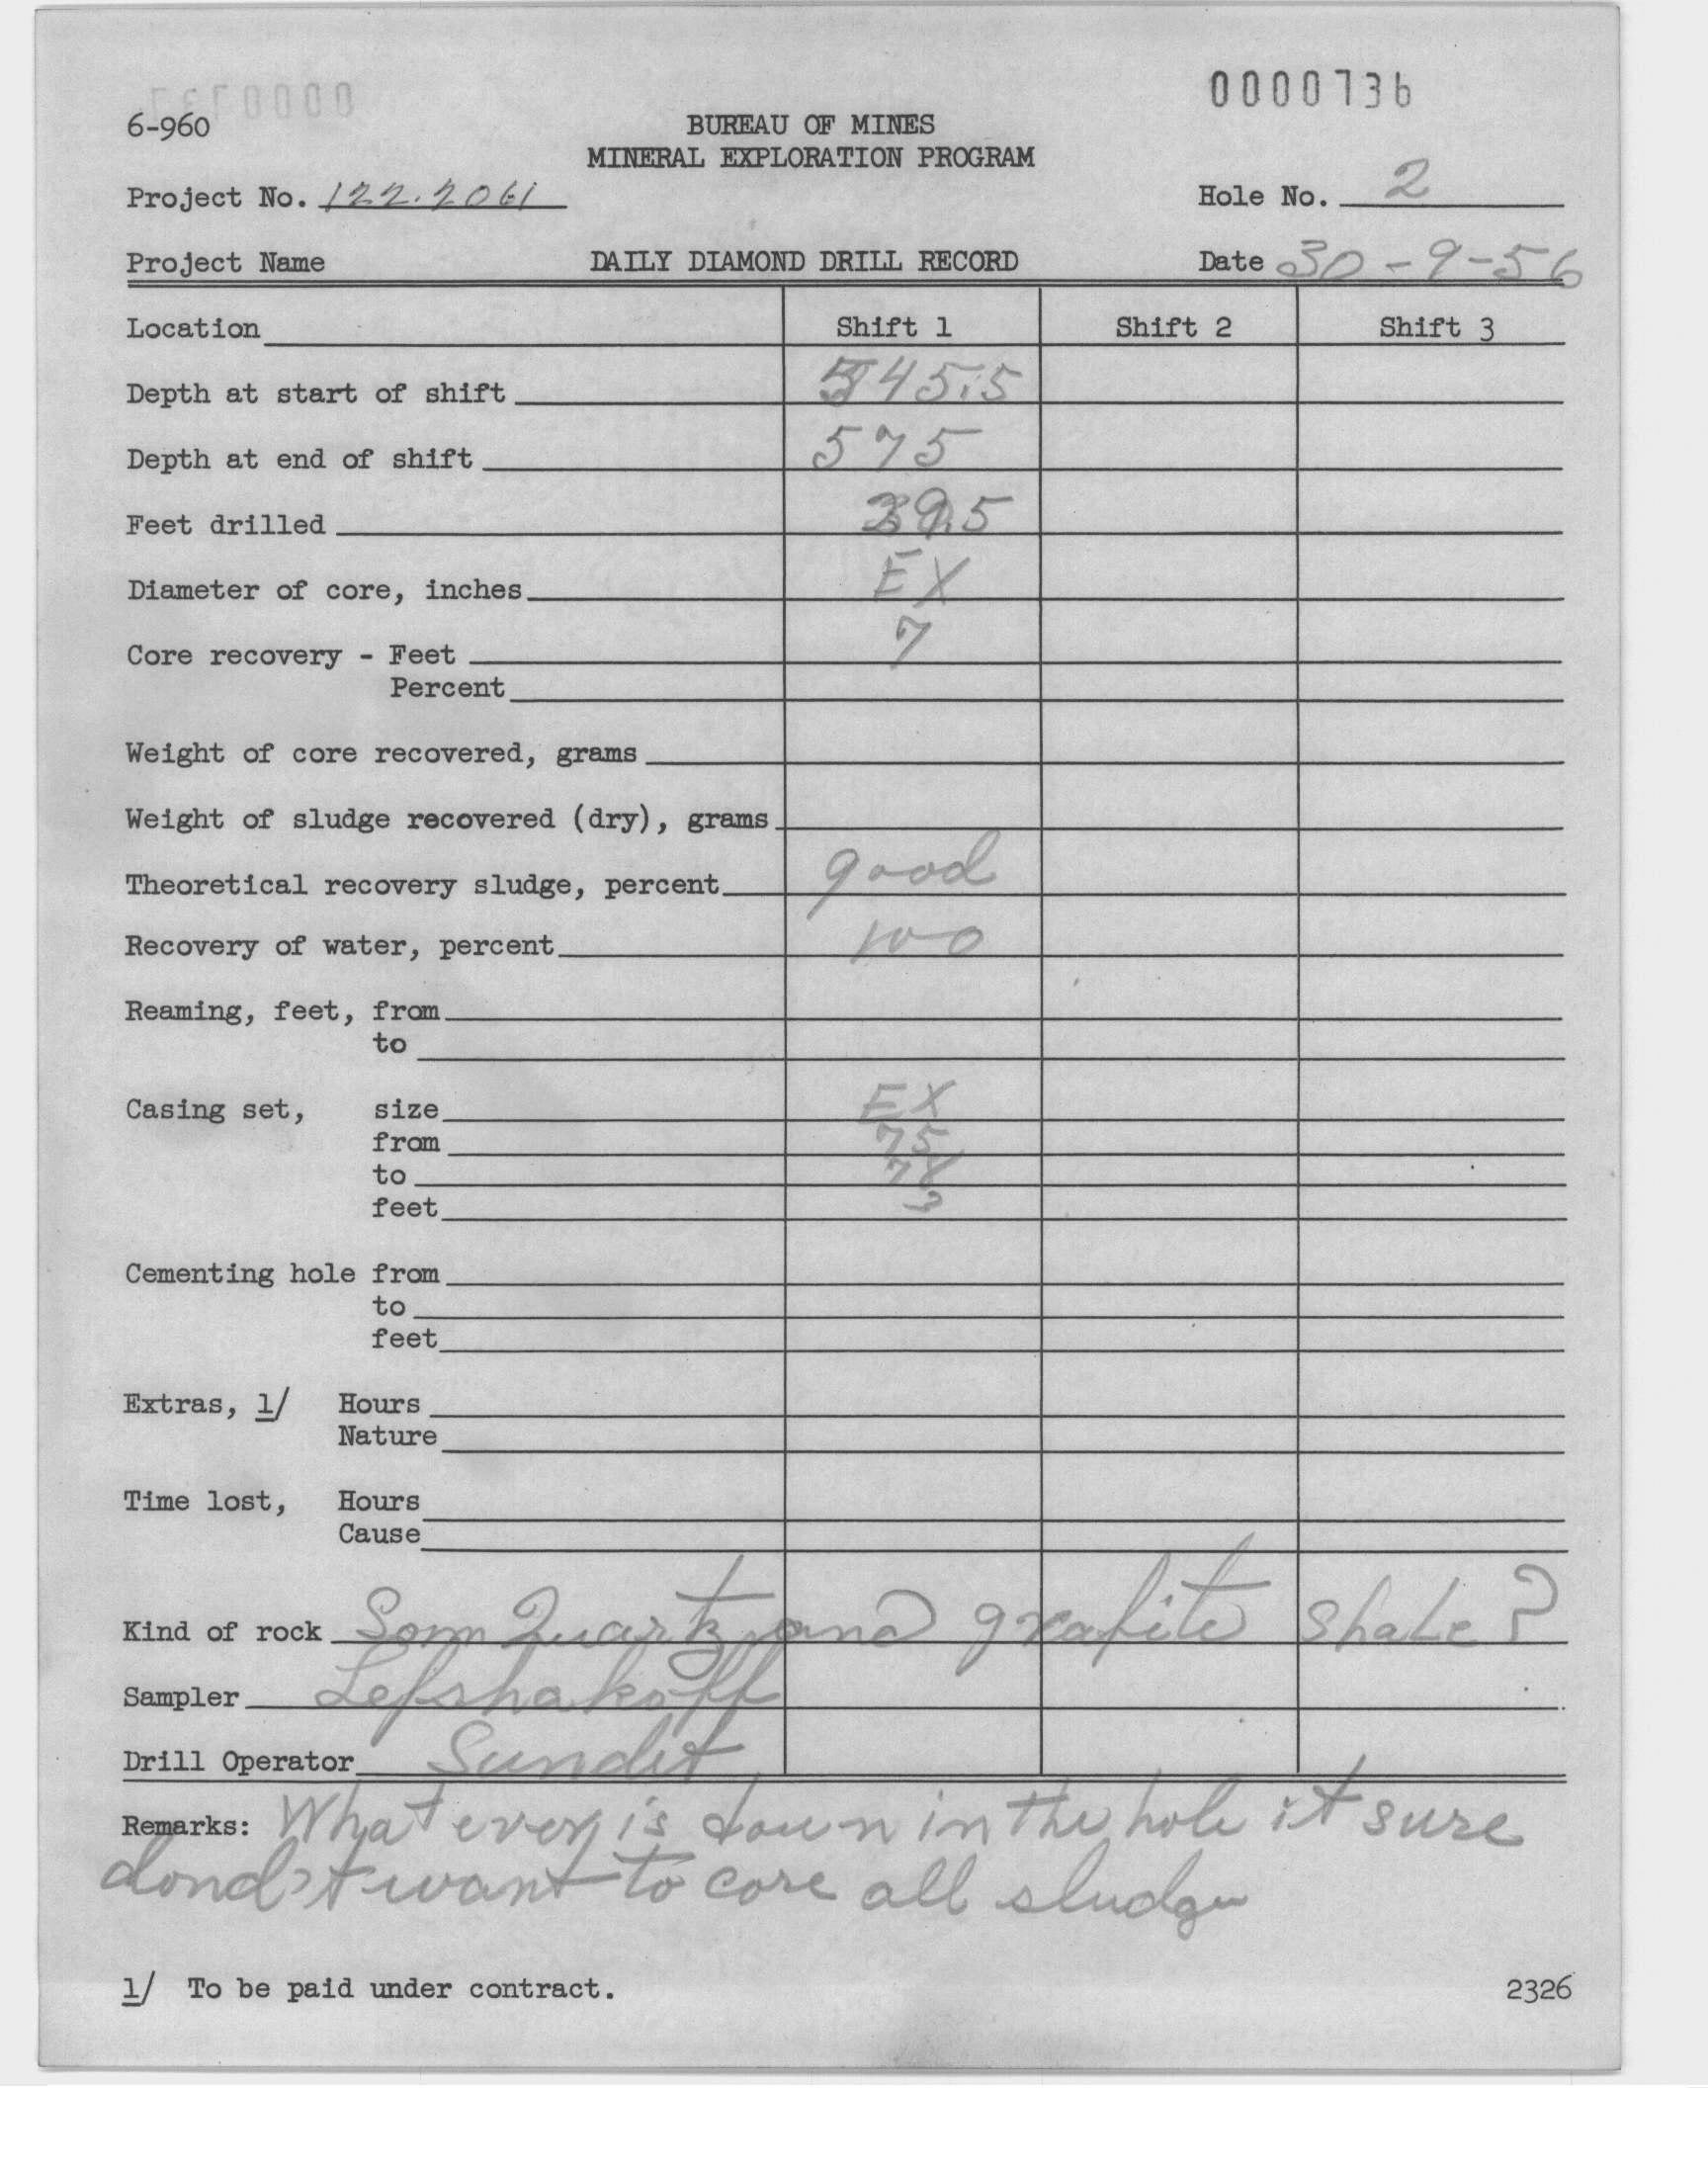 0000736
6-960
BUREAU OF MINES
MINERAL EXPLORATION PROGRAM
Project No. 122.2061
Hole No. 2
Project Name
DAILY DIAMOND DRILL RECORD
Date 30-9-56
Location Shift 1 Shift 2 Shift 3
Depth at start of shift 545.5
Depth at end of shift 575
Feet drilled 29.5
Diameter of core, inches EX
Core recovery - Feet 7
Percent
Weight of core recovered, grams
Weight of sludge recovered (dry), grams
Theoretical recovery sludge, percent good
Recovery of water, percent 100
Reaming, feet, from
to
Casing set, size EX
from 75
to 78
feet 3
Cementing hole from
to
feet
Extras, 1/ Hours
Nature
Time lost, Hours
Cause
Kind of rock Som Quartz and grafite shale?
Sampler Lefshakoff
Drill Operator Sundit
Remarks: What ever is down in the hole it sure
dond't want to core all sludge
1/ To be paid under contract.
2326